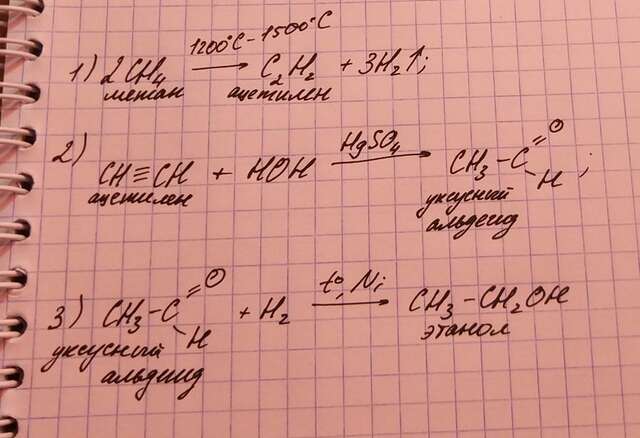 1) 2CH₄ 1200°C - 1500°C → C₂H₂ + 3H₂↑;
метан ацетилен
2) CH≡CH + HOH HgSO₄ → CH₃-C=O
-H;
ацетилен уксусный
альдегид
3) CH₃-C=O
-H + H₂ t°, Ni → CH₃-CH₂OH
уксусный этанол
альдегид